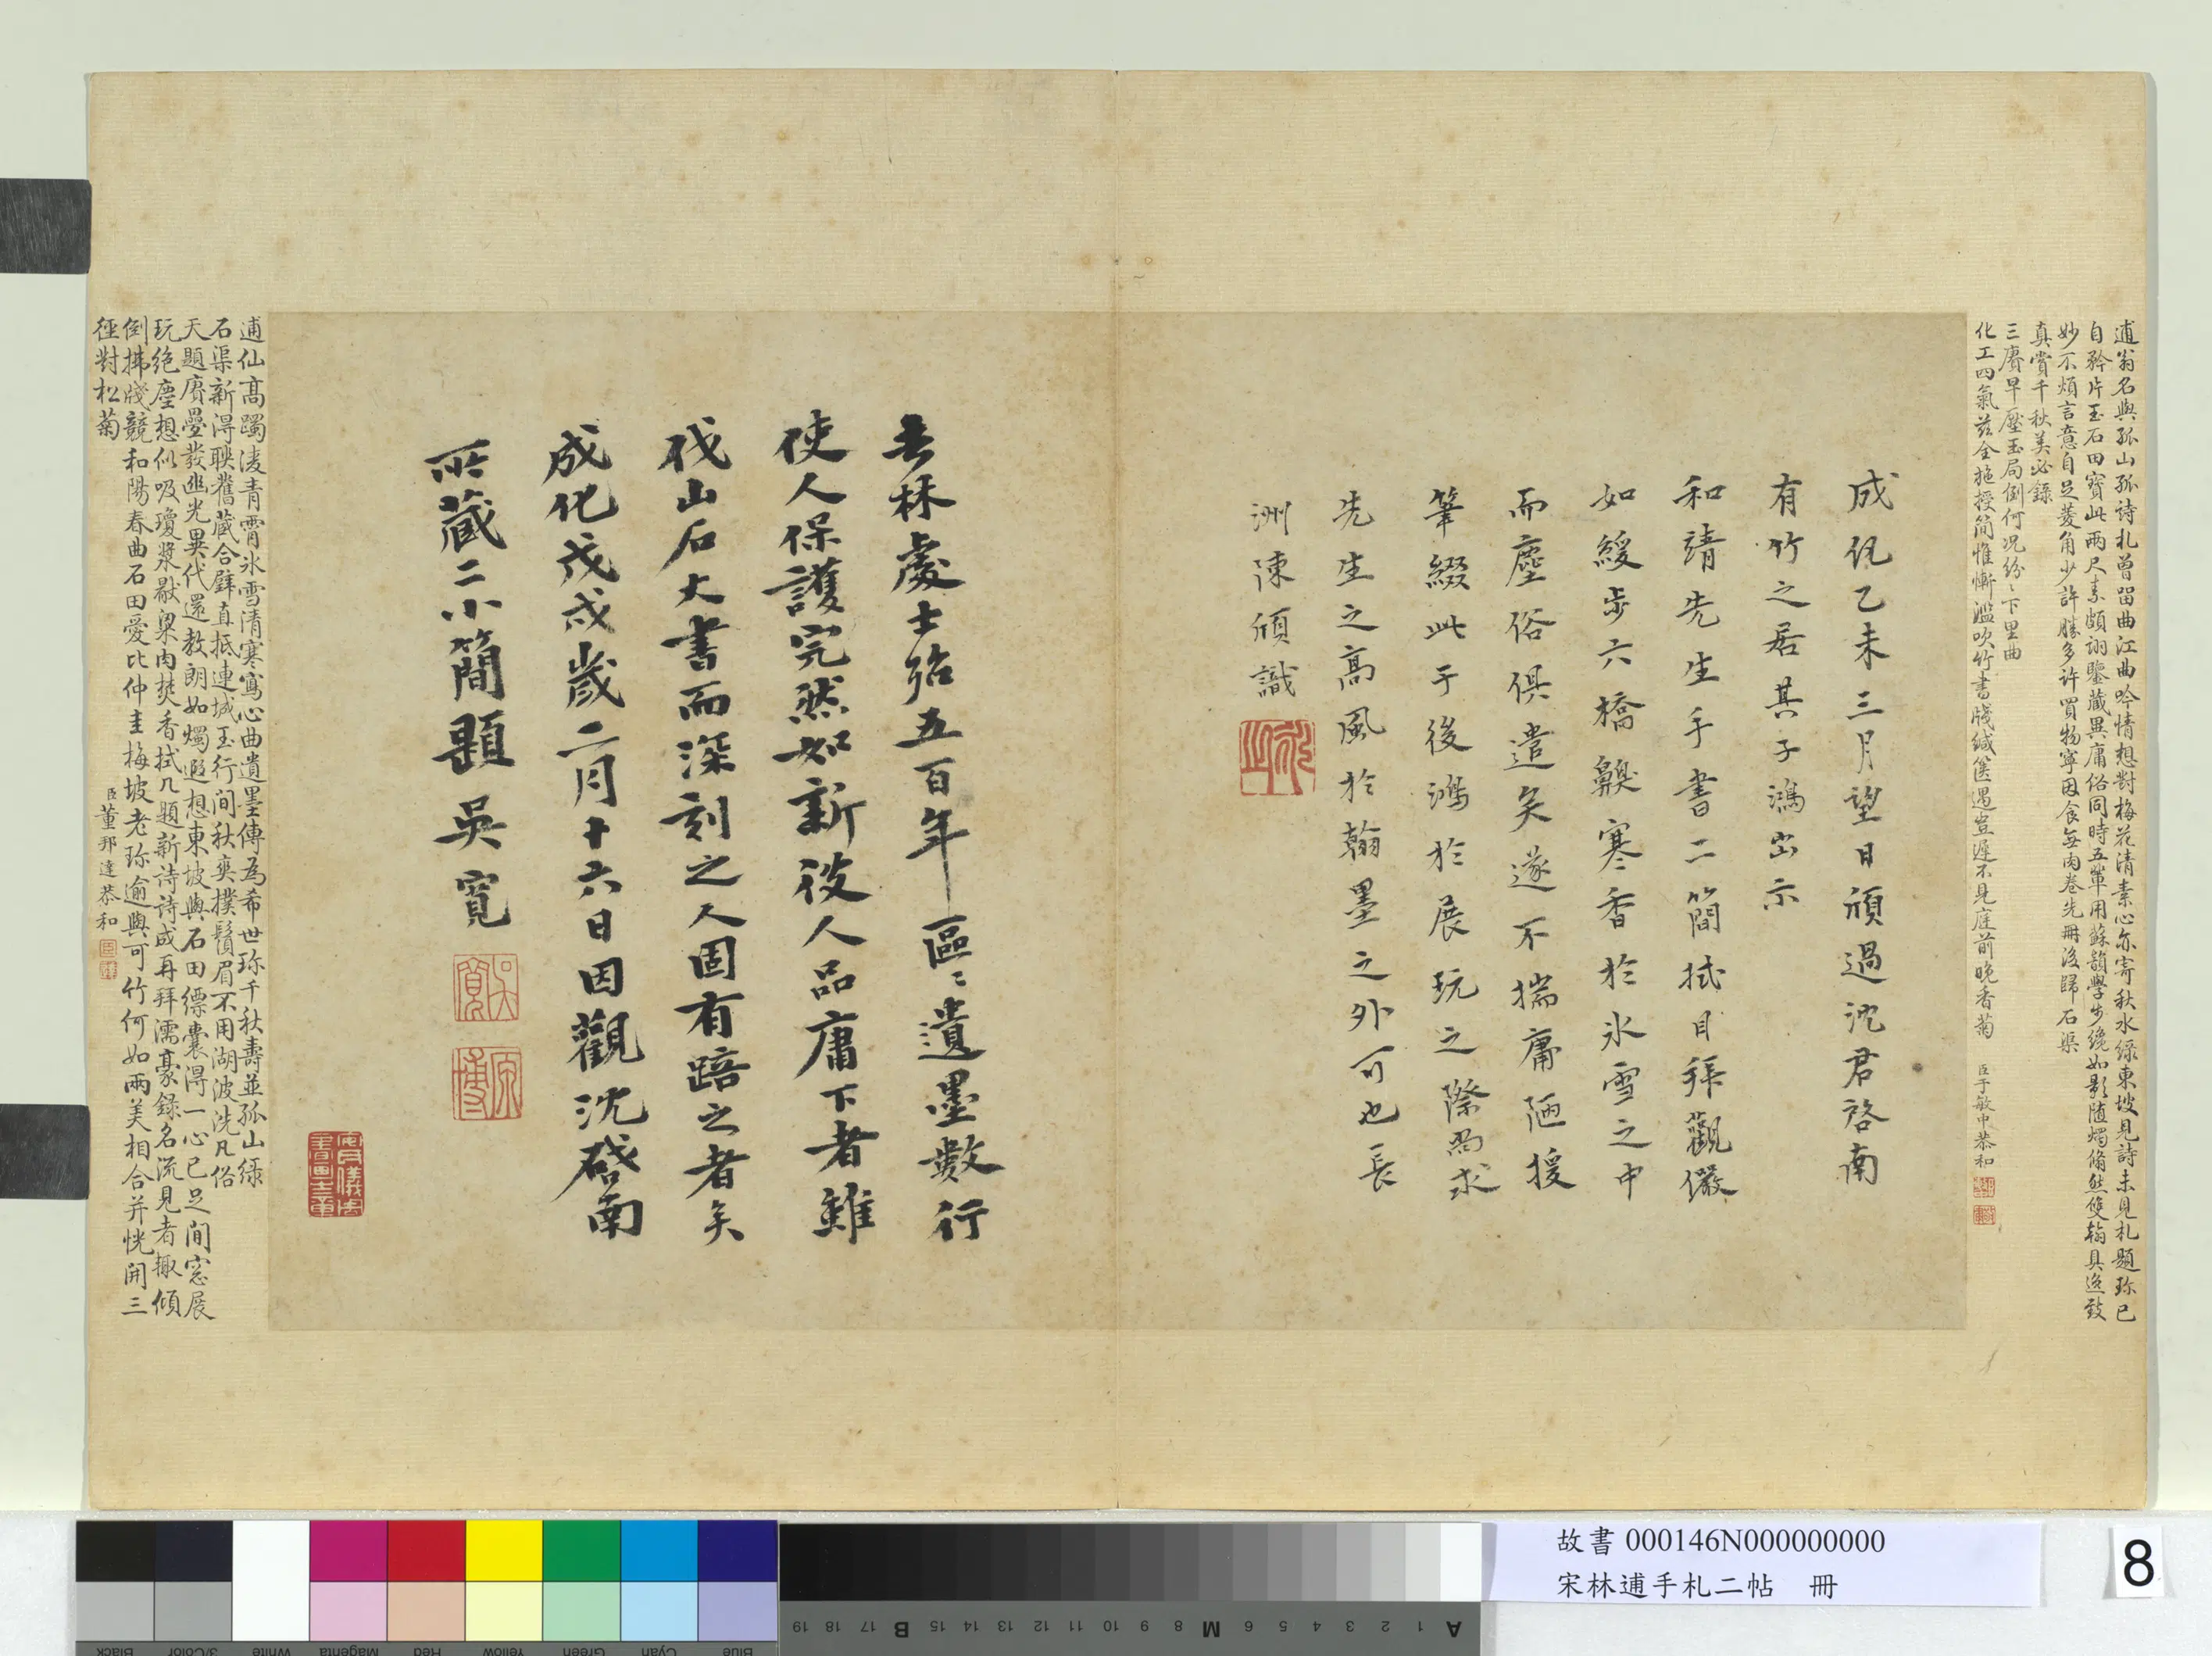 逋翁名與孤山孤詩札曾留曲江曲吟情想對梅花清素心亦寄秋水綠東坡見詩未見札題珎已
自矜片玉石田寶此兩尺素頗詡鑒藏異庸俗同時五輩用蘇韻學步纔如影随燭翛然雙翰具逸致
妙不煩言意自足菱角少許勝多許買物寧因食每肉卷先冊後歸石渠
真賞千秋美必錄
三賡早壓玉局倒何况紛〻下里曲
化工四氣茲全拖授簡惟慚濫吹竹書牋緘篋遇豈遲不見庭前晚香菊
臣于敏中恭和
成化乙未三月望日頎過沈君啓南
有竹之居其子鴻出示
和靖先生手書二簡拭目拜觀儼
如緩步六橋齅寒香於氷雪之中
而塵俗俱遣矣遂不揣庸陋援
筆綴此于後鴻於展玩之際當求
先生之高風於翰墨之外可也長
洲陳頎識
去林處士殆五百年區〻遺墨數行
使人保護完然如新彼人品庸下者雖
伐山石大書而深刻之人固有踣之者矣
成化戊戌歲二月十六日因觀沈啓南
所藏二小簡題吳寬
吳寬
原博
安儀周家珍藏
逋仙高躅淩青霄氷雪清寒寫心曲遺墨傳為希世珎千秋壽並孤山綠
石渠新得聯舊藏合璧直抵連城玉行間秋爽撲鬚眉不用湖波洗凡俗
天題賡疊發幽光異代還教朗如燭遐想東坡與石田縹囊得一心已足閒窓展
玩絶塵想似吸瓊漿猒粱肉焚香拭几題新詩詩成再拜濡豪錄名流見者輙傾
倒拂牋競和陽春曲石田愛比仲圭梅坡老珎逾與可竹何如兩美相合并恍開三
徑對松菊
臣董邦達恭和
故書 000146N000000000
宋林逋手札二帖 冊
8
Black
3/Color
White
Magenta
Red
Yellow
Green
Cyan
Blue
A 1 2 3 4 5 6 M 8 9 10 11 12 13 14 15 B 17 18 19